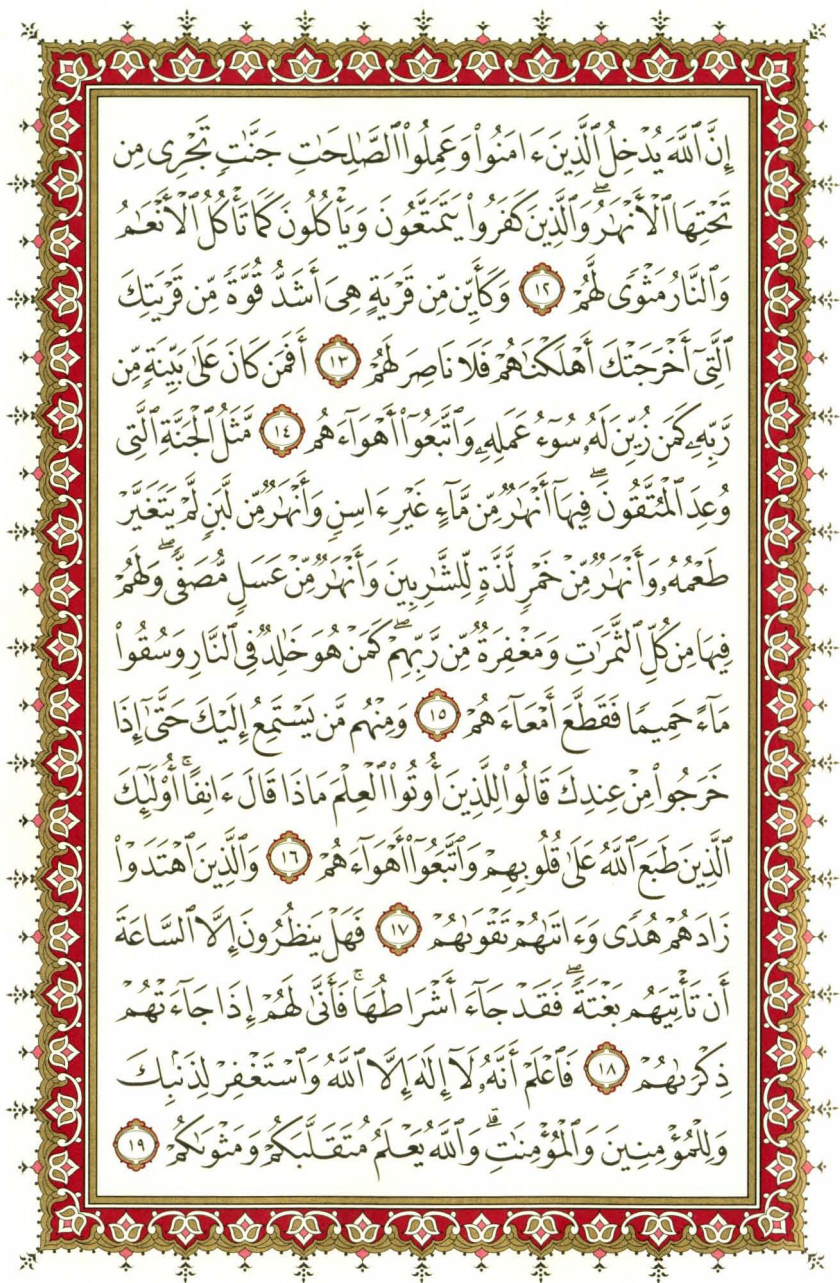 إِنَّ ٱللَّهَ يُدْخِلُ ٱلَّذِينَ ءَامَنُوا۟ وَعَمِلُوا۟ ٱلصَّٰلِحَٰتِ جَنَّٰتٍ تَجْرِى مِن
تَحْتِهَا ٱلْأَنْهَٰرُ ۖ وَٱلَّذِينَ كَفَرُوا۟ يَتَمَتَّعُونَ وَيَأْكُلُونَ كَمَا تَأْكُلُ ٱلْأَنْعَٰمُ
وَٱلنَّارُ مَثْوًى لَّهُمْ ١٢ وَكَأَيِّن مِّن قَرْيَةٍ هِىَ أَشَدُّ قُوَّةً مِّن قَرْيَتِكَ
ٱلَّتِىٓ أَخْرَجَتْكَ أَهْلَكْنَٰهُمْ فَلَا نَاصِرَ لَهُمْ ١٣ أَفَمَن كَانَ عَلَىٰ بَيِّنَةٍ مِّن
رَّبِّهِۦ كَمَن زُيِّنَ لَهُۥ سُوٓءُ عَمَلِهِۦ وَٱتَّبَعُوٓا۟ أَهْوَآءَهُم ١٤ مَّثَلُ ٱلْجَنَّةِ ٱلَّتِى
وُعِدَ ٱلْمُتَّقُونَ ۖ فِيهَآ أَنْهَٰرٌ مِّن مَّآءٍ غَيْرِ ءَاسِنٍ وَأَنْهَٰرٌ مِّن لَّبَنٍ لَّمْ يَتَغَيَّرْ
طَعْمُهُۥ وَأَنْهَٰرٌ مِّنْ خَمْرٍ لَّذَّةٍ لِّلشَّٰرِبِينَ وَأَنْهَٰرٌ مِّنْ عَسَلٍ مُّصَفًّى ۖ وَلَهُمْ
فِيهَا مِن كُلِّ ٱلثَّمَرَٰتِ وَمَغْفِرَةٌ مِّن رَّبِّهِمْ ۖ كَمَنْ هُوَ خَٰلِدٌ فِى ٱلنَّارِ وَسُقُوا۟
مَآءً حَمِيمًا فَقَطَّعَ أَمْعَآءَهُمْ ١٥ وَمِنْهُم مَّن يَسْتَمِعُ إِلَيْكَ حَتَّىٰٓ إِذَا
خَرَجُوا۟ مِنْ عِندِكَ قَالُوا۟ لِلَّذِينَ أُوتُوا۟ ٱلْعِلْمَ مَاذَا قَالَ ءَانِفًا ۚ أُو۟لَٰٓئِكَ
ٱلَّذِينَ طَبَعَ ٱللَّهُ عَلَىٰ قُلُوبِهِمْ وَٱتَّبَعُوٓا۟ أَهْوَآءَهُمْ ١٦ وَٱلَّذِينَ ٱهْتَدَوْا۟
زَادَهُمْ هُدًى وَءَاتَىٰهُمْ تَقْوَىٰهُمْ ١٧ فَهَلْ يَنظُرُونَ إِلَّا ٱلسَّاعَةَ
أَن تَأْتِيَهُم بَغْتَةً ۖ فَقَدْ جَآءَ أَشْرَاطُهَا ۚ فَأَنَّىٰ لَهُمْ إِذَا جَآءَتْهُمْ
ذِكْرَىٰهُمْ ١٨ فَٱعْلَمْ أَنَّهُۥ لَآ إِلَٰهَ إِلَّا ٱللَّهُ وَٱسْتَغْفِرْ لِذَنۢبِكَ
وَلِلْمُؤْمِنِينَ وَٱلْمُؤْمِنَٰتِ ۗ وَٱللَّهُ يَعْلَمُ مُتَقَلَّبَكُمْ وَمَثْوَىٰكُمْ ١٩